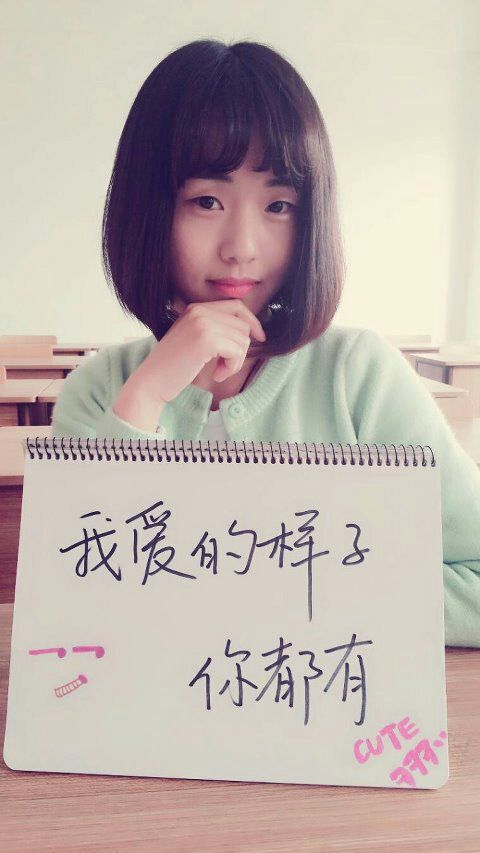 我爱的样子
你都有
CUTE
ㅋㅋㅋ..